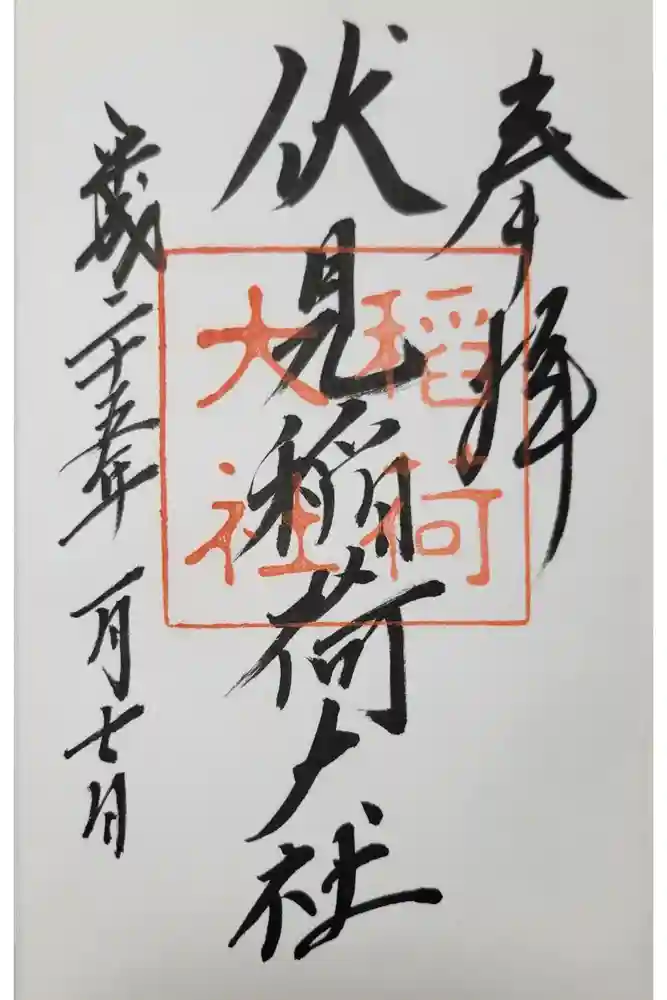 奉拝
伏見稲荷大社
稲荷
大社
平成二十五年一月七日